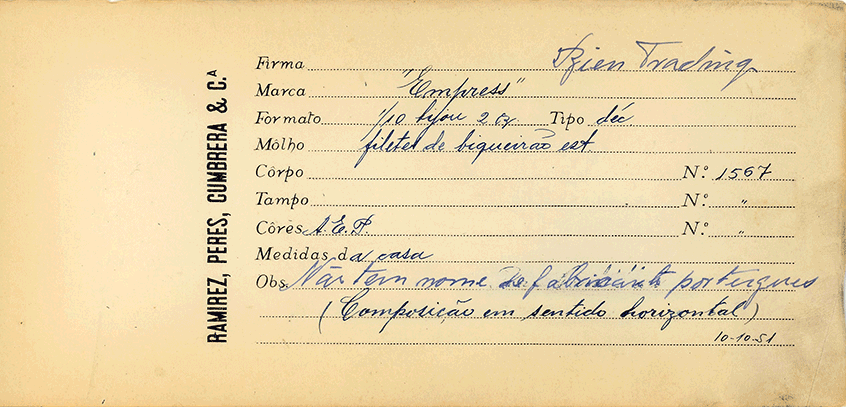 RAMIREZ, PERES, CUMBRERA & C.ᴬ
Firma Bien Trading
Marca "Empress"
Formato 1/10 bijou 2 oz. Tipo déc
Môlho filetes de biqueirão est
Côrpo N.º 1567
Tampo N.º "
Côres A.E.P. N.º "
Medidas da casa
Obs. Não tem nome de fabricante portugues
(Composição em sentido horizontal)
10-10-51